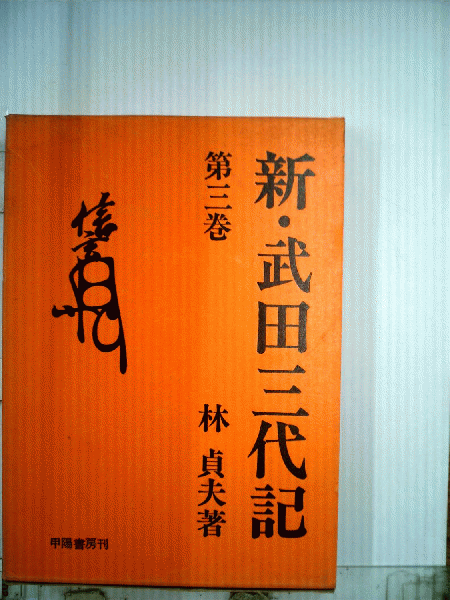 新・武田三代記
第三巻
林 貞夫著
信玄
甲陽書房刊